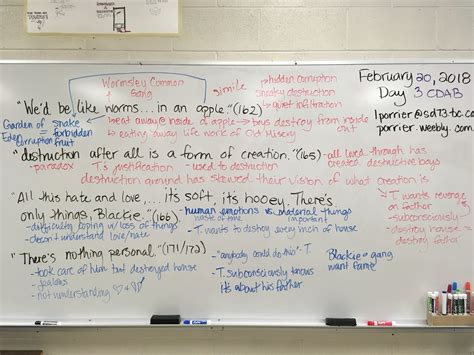 Wormsley Common
Gang
simile
hidden corruption
sneaky destruction
quiet infiltration
February 20, 2018
Day 3 CDAB
lporrier@sd73.bc.c
porrier.weebly.com
"We'd be like worms... in an apple." (162)
Garden of Eden
snake
forbidden fruit
corruption
eat away @ inside of apple → T. destroy from inside out
↳ eating away life work of Old Misery
"destruction after all is a form of creation." (165)
- paradox - T.'s justification - used to destruction
- all lived through has created destructive boys
destruction around has skewed their vision of what creation is
"All this hate and love,... it's soft, it's hooey. There's
only things, Blackie." (166)
human emotions vs. material things
waste of time
important
- difficulty coping w/ loss of things
- T. wants to destroy every inch of house
- don't understand love/hate
- T. wants revenge on father
- subconsciously
- destroy house = destroy father
"There's nothing personal." (171/172)
- took care of him but destroyed house
- jealous
- not understanding
- "anybody could do this" - T.
- T. subconsciously knows
it's about his father
Blackie + gang
want fame